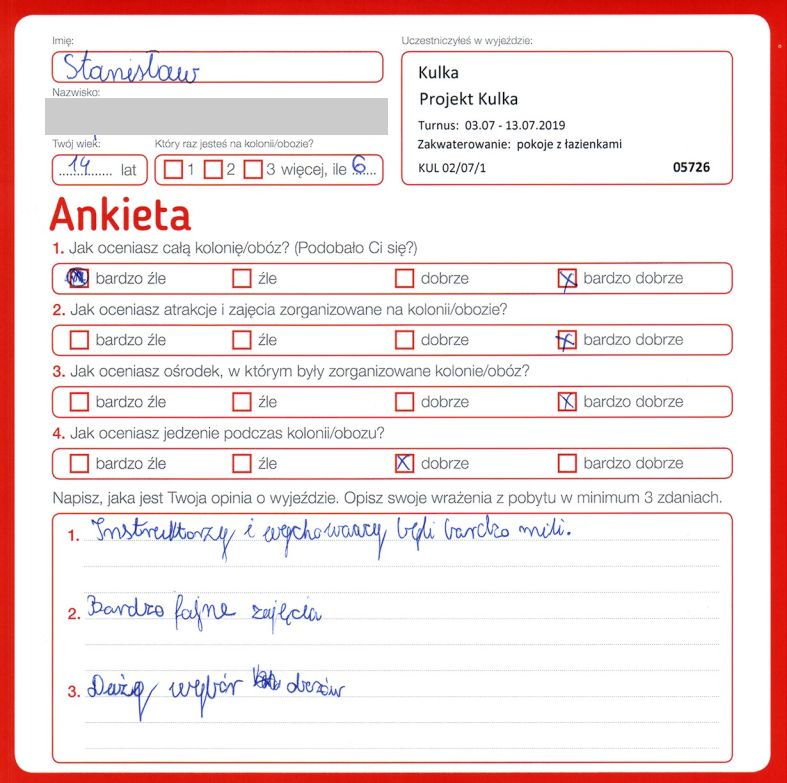 Imię:
Stanisław
Nazwisko:
Twój wiek:
14 lat
Który raz jesteś na kolonii/obozie?
1 2 3 więcej, ile 6
Uczestniczyłeś w wyjeździe:
Kulka
Projekt Kulka
Turnus: 03.07 - 13.07.2019
Zakwaterowanie: pokoje z łazienkami
KUL 02/07/1 05726
Ankieta
1. Jak oceniasz całą kolonię/obóz? (Podobało Ci się?)
bardzo źle źle dobrze bardzo dobrze
2. Jak oceniasz atrakcje i zajęcia zorganizowane na kolonii/obozie?
bardzo źle źle dobrze bardzo dobrze
3. Jak oceniasz ośrodek, w którym były zorganizowane kolonie/obóz?
bardzo źle źle dobrze bardzo dobrze
4. Jak oceniasz jedzenie podczas kolonii/obozu?
bardzo źle źle dobrze bardzo dobrze
Napisz, jaka jest Twoja opinia o wyjeździe. Opisz swoje wrażenia z pobytu w minimum 3 zdaniach.
1. Instruktorzy i wychowawcy byli bardzo mili.
2. Bardzo fajne zajęcia
3. Duży wybór